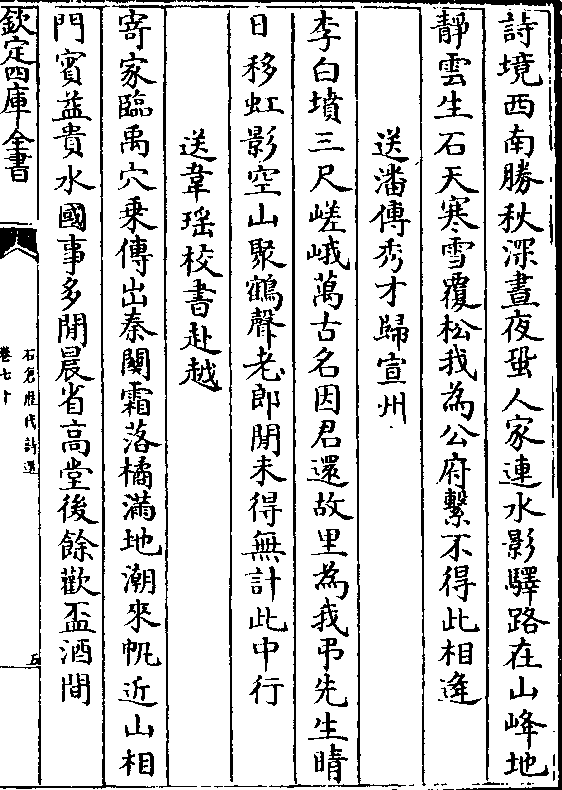 詩境西南勝秋深晝夜蛩人家連水影驛路在山峰地
靜雲生石天寒雪覆松我為公府繫不得此相逢
送潘傳秀才歸宣州
李白墳三尺嵯峨萬古名因君還故里為我弔先生晴
日移虹影空山聚鶴聲老郎閒未得無計此中行
送韋瑶校書赴越
寄家臨禹穴乗傳出秦闗霜落橘滿地潮來帆近山相
門賓益貴水國事多閒晨省高堂後餘歡盃酒間
欽定四庫全書
石倉歷代詩選
卷七十
五